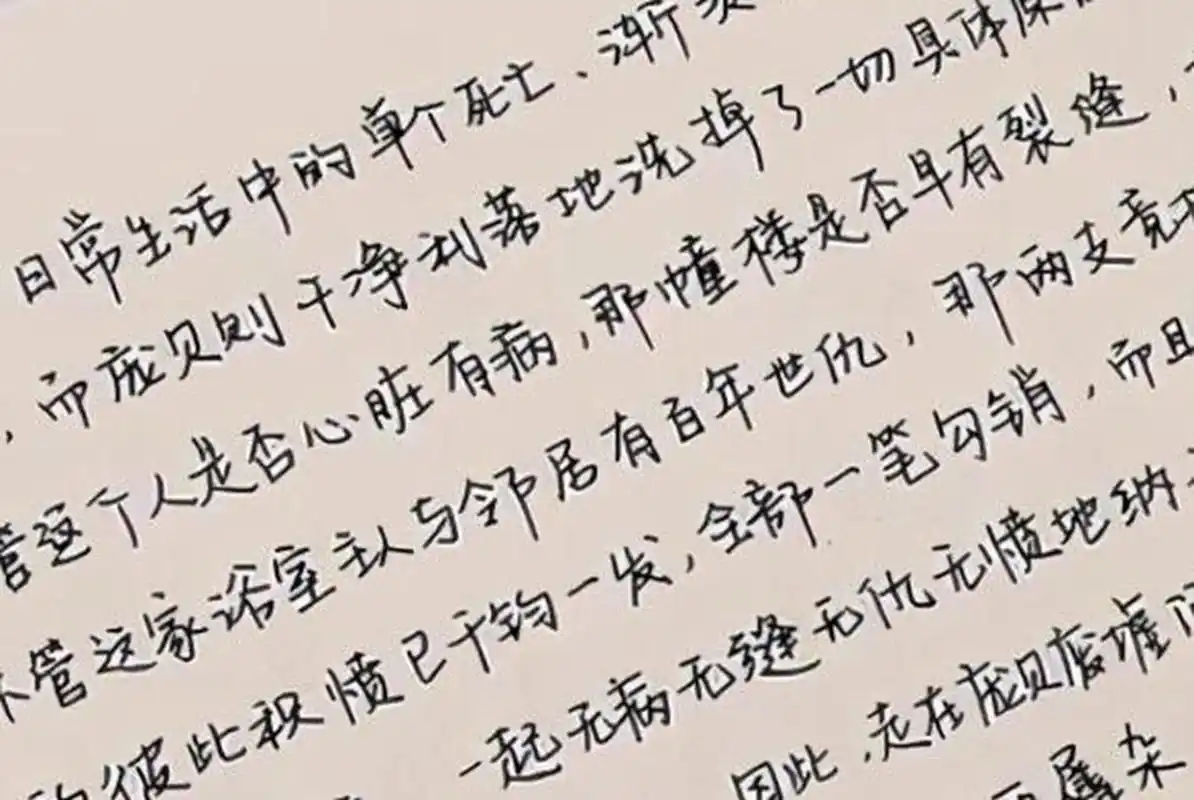 日常生活中的单个死亡、渐
，而庞贝则干净利落地洗掉了一切具体
管这个人是否心脏有病，那幢楼是否早有裂缝，
管这家浴室主人与邻居有百年世仇，那两支竞
彼此积愤已千钧一发，全部一笔勾销，而且
一起无病无缝无仇无愤地纳
因此，走在庞贝废墟
杂